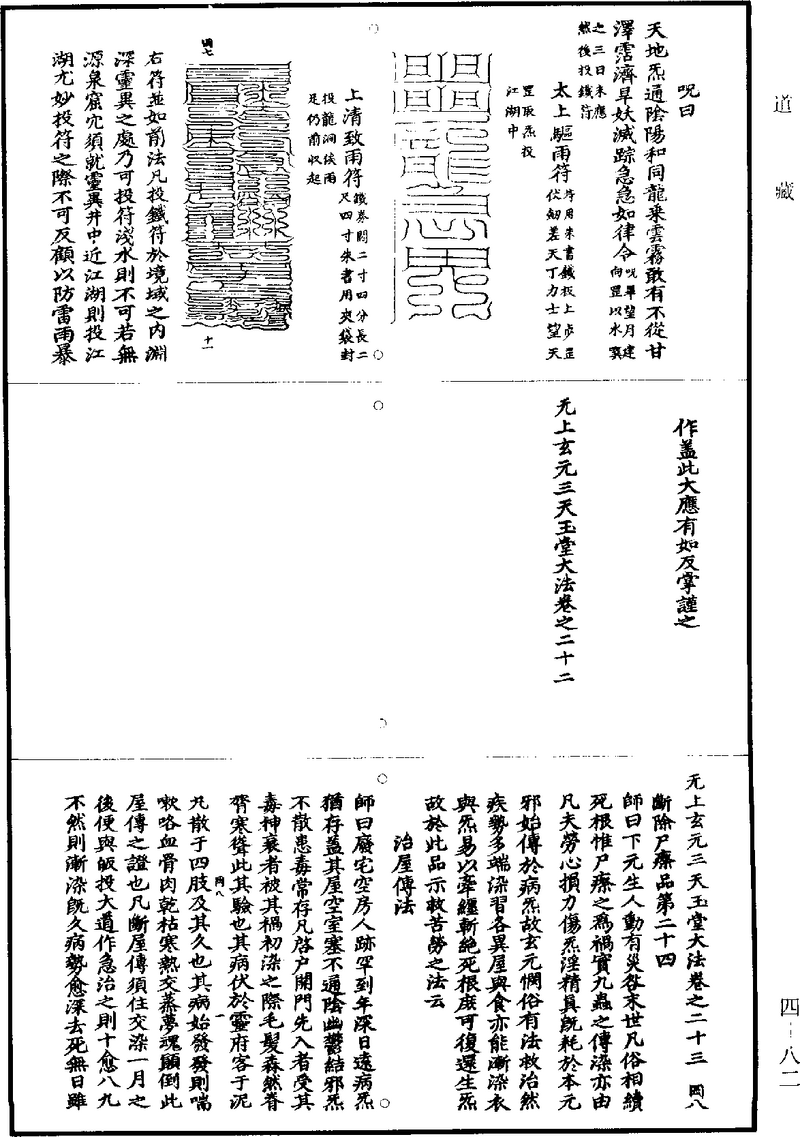 道藏
四-八二
呪曰
天地炁通陰陽和同龍乗雲霧敢有不從甘
澤霑濟旱妖滅踪急急如律令呪畢望月建
向罡以水噀
之三日未應
然後投鐵符
太上驅雨符符用朱書鐵板上步罡
伏劒差天丁力士望天
罡取炁投
江湖中
上清致雨符鐵券闊二寸四分長二
尺四寸朱書用夾袋封
投龍洞候雨
足仍前收起
罔七
十一
右符並如前法凡投鐵符於境域之内淵
深靈異之處乃可投符淺水則不可若無
源泉窟穴須就靈異井中近江湖則投江
湖尤妙投符之際不可反顧以防雷雨暴
作蓋此大應有如反掌謹之
无上玄元三天玉堂大法卷之二十二
无上玄元三天玉堂大法卷之二十三 罔八
斷除尸瘵品第二十四
師曰下元生人動有災咎末世凡俗相續
死根惟尸瘵之爲禍實九蟲之傳染亦由
凡夫勞心損力傷炁淫精真旣耗於本元
邪始傳於病炁故玄元憫俗有法救治然
疾勢多端染習各異屋與食亦能漸染衣
與炁易以牽纏斬絶死根庶可復還生炁
故於此品示救苦勞之法云
治屋傳法
師曰廢宅空房人跡罕到年深日遠病炁
猶存蓋其屋空室塞不通陰幽鬱結邪炁
不散患毒常存凡啓户開門先入者受其
毒神衰者被其禍初染之際毛髮森然脊
膂寒聳此其驗也其病伏於靈府客于泥
丸散于四肢及其久也其病始發發則喘
罔八
一
嗽咯血骨肉乾枯寒熱交蒸夢魂顛倒此
屋傳之證也凡斷屋傳須住交染一月之
後便與皈投大道作急治之則十愈八九
不然則漸染旣久病勢愈深去死無日雖